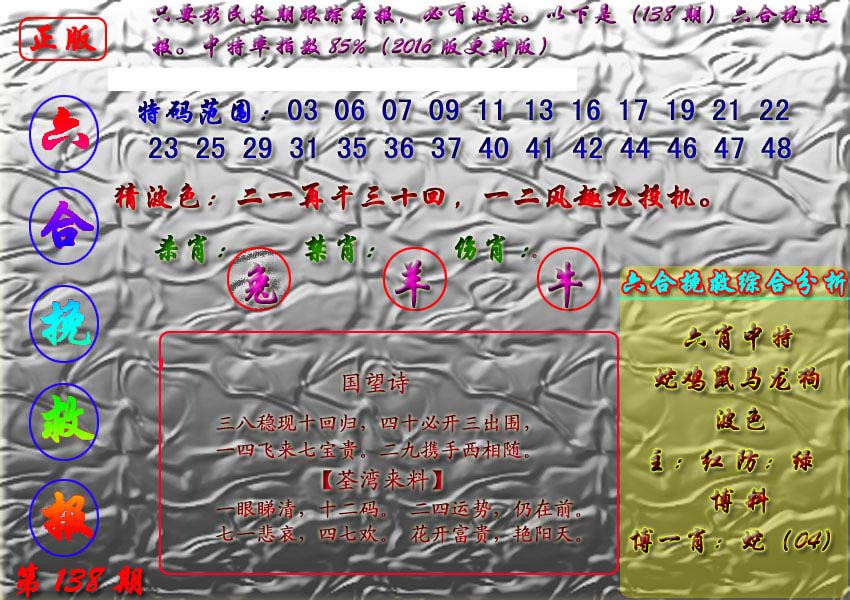 只要彩民长期跟踪本报，必有收获。以下是（138期）六合挽救
报。中特率指数85%（2016版更新版）
正版
六合挽救报
第138期
特码范围：03 06 07 09 11 13 16 17 19 21 22
23 25 29 31 35 36 37 40 41 42 44 46 47 48
猜波色：二一再干三十回，一二风趣九投机。
杀肖：兔 禁肖：羊 伤肖：牛
国望诗
三八稳现十回归，四十必开三出围，
一四飞来七宝贵。二九携手两相随。
【荃湾来料】
一眼睇清，十二码。 二四运势，仍在前。
七一悲哀，四七欢。 花开富贵，艳阳天。
六合挽救综合分析
六肖中特
蛇鸡鼠马龙狗
波色
主：红防：绿
博料
博一肖：蛇（04）